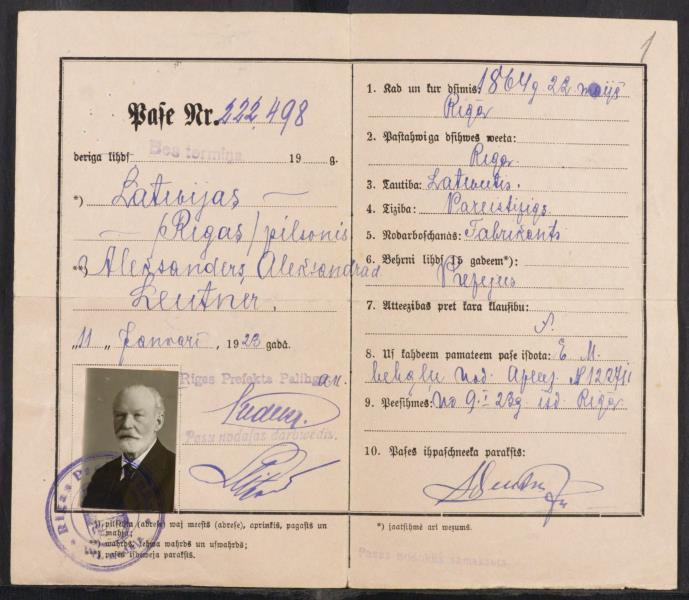 Paſe Nr. 222,498
deriga lihdſ Bes termiņa 19 g.
*) Latvijas —
— /Rīgas/ pilsonis
**) Aleksanders, Aleksandra d.
Leutner.
„11 „ Janvarī 1923 gadā.
Rīgas Prefekta Palīgs
Pasu nodaļas darbvedis.
Rīgas
*) pilſehta (adreſe) waj meeſts (adreſe), aprinkis, pagaſts un
mahja;
**) wahrds, tehwa wahrds un uſwahrds;
paſes iſdeweja parakſts.
1
1. Kad un kur dſimis: 1864g 22 maijs
Rīgā
2. Paſtahwiga dſihwes weeta:
Rīgā.
3. Tautiba: Latvietis.
4. Tiziba: Pareizticīgs
5. Nodarboſchanās: Fabrikants
6. Behrni lihdſ 15 gadeem*):
7. Atteezibas pret kara klauſibu:
8. Uſ kahdeem pamateem paſe iſdota: E. M.
nod. Apliec. № 12271
9. Peeſihmes: no 9.I 23g izd. Rīgā
10. Paſes ihpaſchneeka parakſts:
*) jaatſihmē ari wezums.